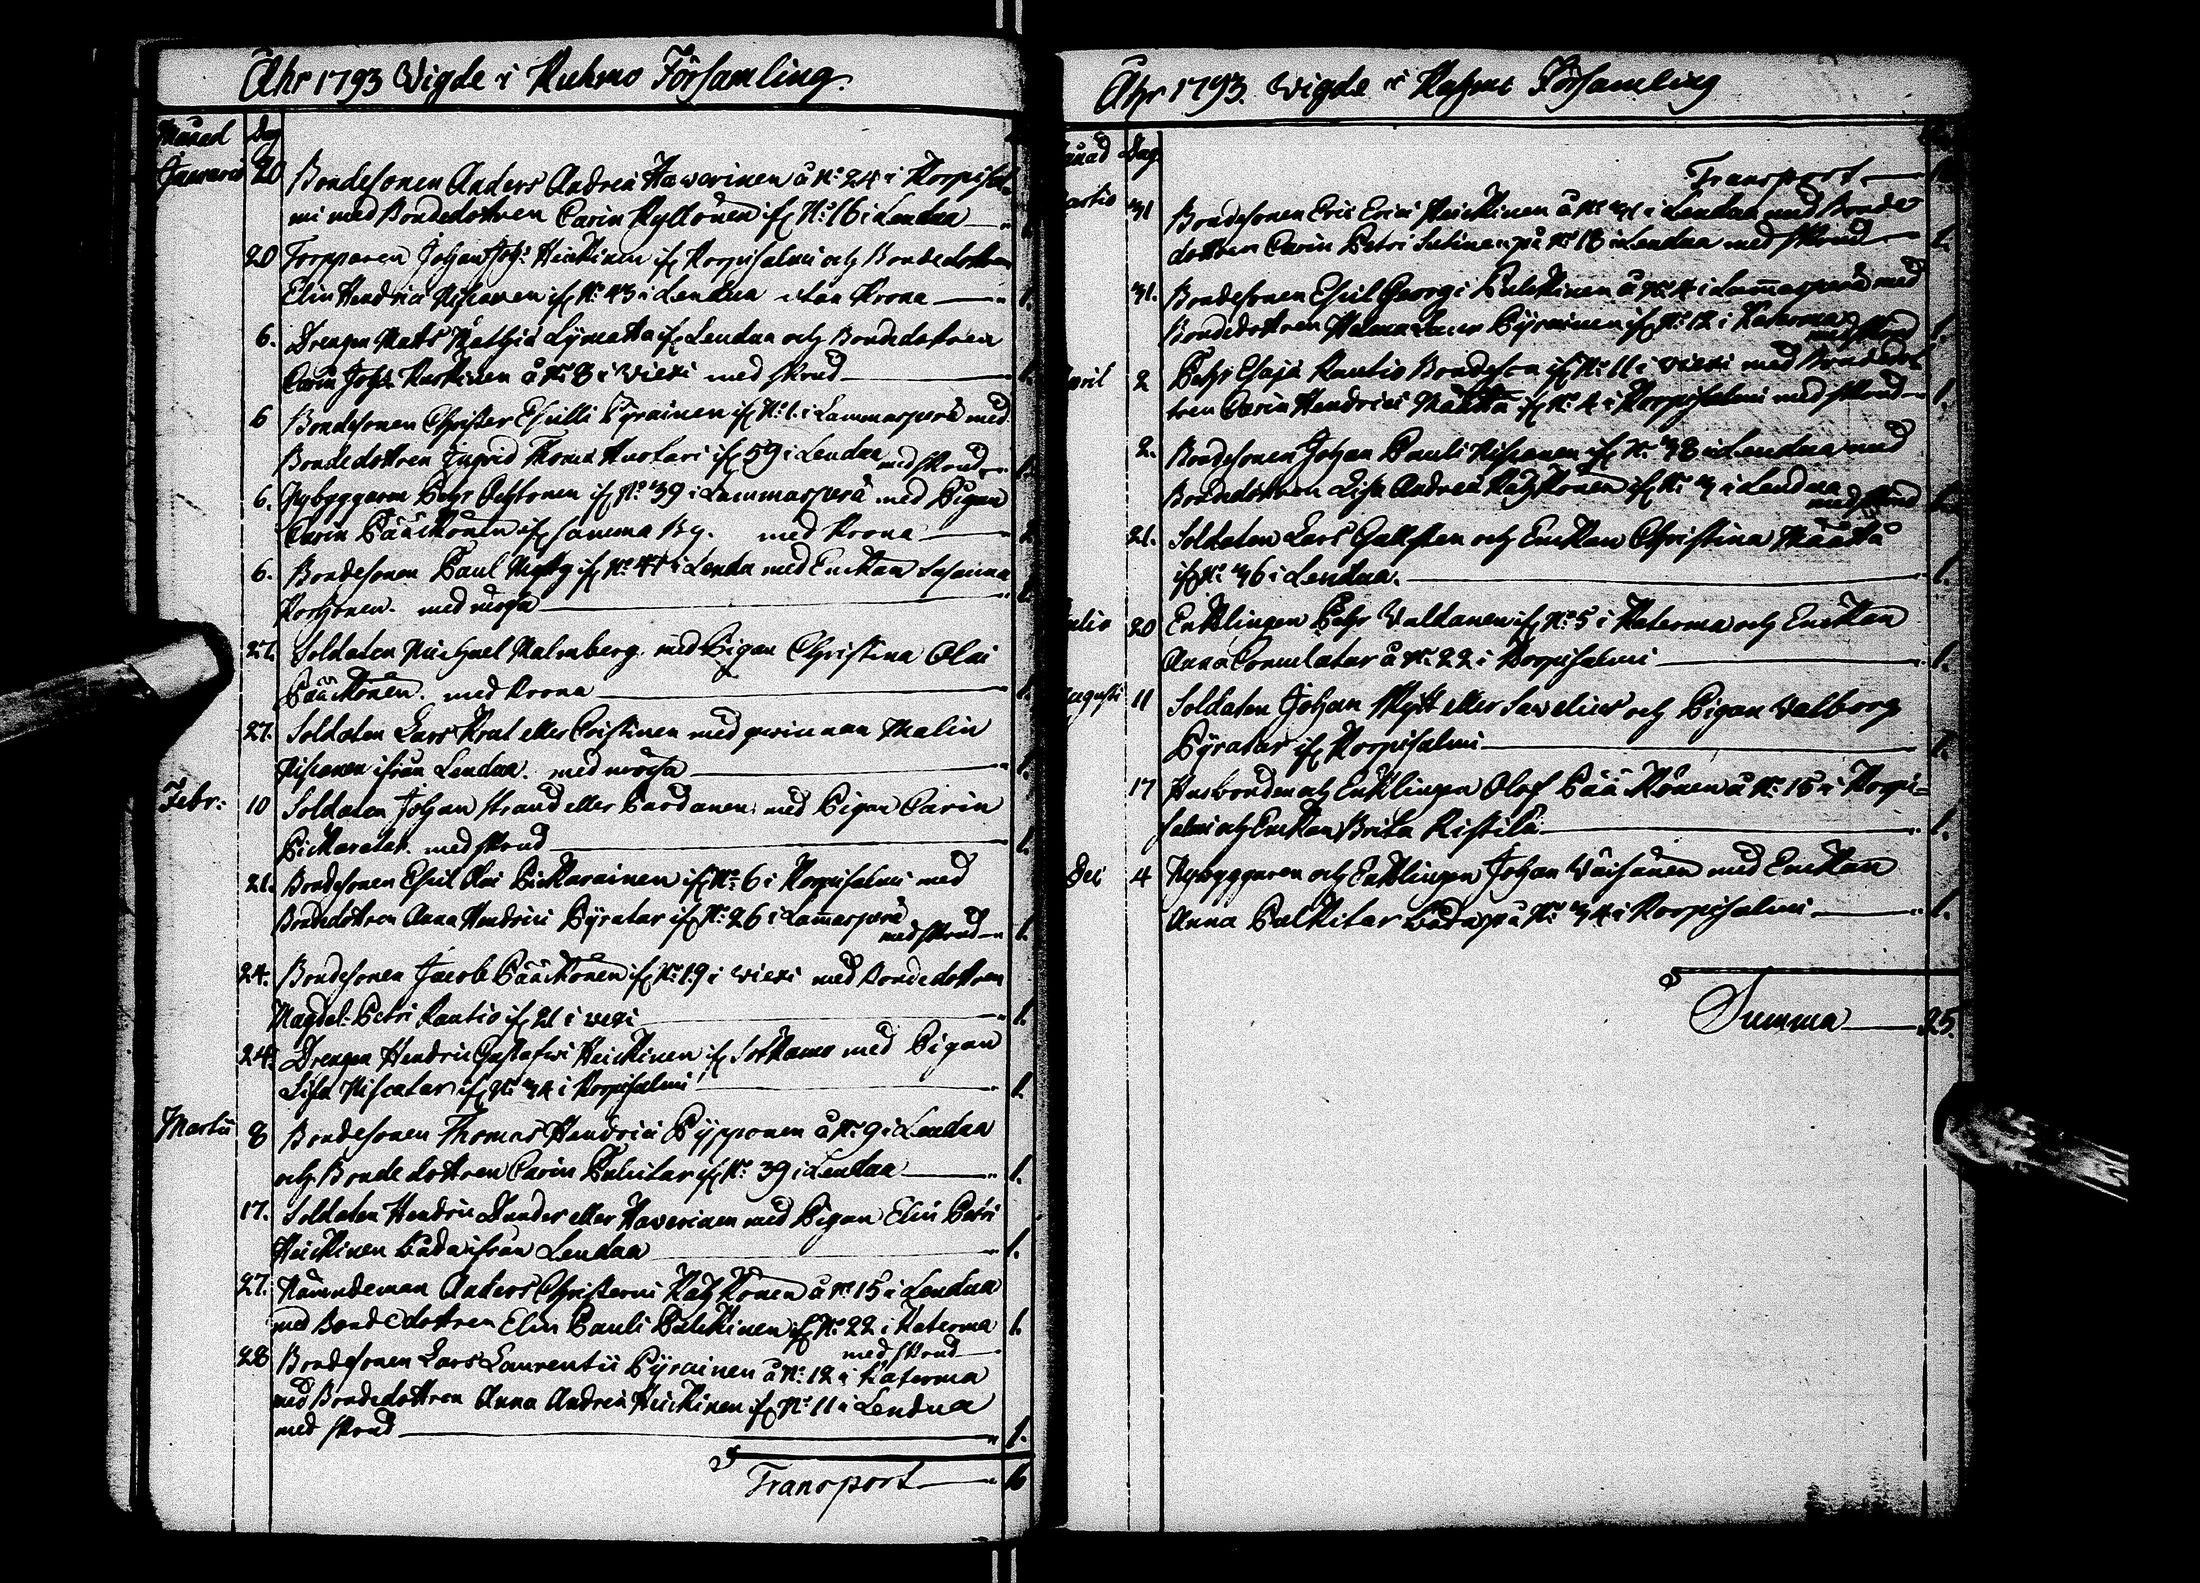 Åhr 1793 Vigde i Kuhmo Församling.
Månad Dag
Januarii 20 Bondesonen Anders Andreæ Haverinen å No 24 i Korpisal-
mi med Bondedottren Carin Kyllönen if No 16 i Lendua 1.
20 Torpparen Johan Joh: Heickinen if Korpisalmi och Bondedottren
Elin Hendrici Niskanen if No 43 i Lendua utan Krona 1.
6. Drengen Matts Mathiæ Lymatta if Lendua och Bondedottren
Carin Joh: Kuskinen å No 8 i Viexi med skrud 1.
6 Bondesonen Christer Eskilli Pyrainen if No 1. i Lammasperä med
Bondedottren Ingrid Thomæ Huotari if 59 i Lendua med skrud 1.
6. Nybyggaren Pehr Achtonen if No 39 i Lammasperä med Pigan
Carin Pääckönen if samma By. med Krona 1
6. Bondesonen Paul if No 41 i Lendua med Enckan Susanna
Korhonen. med mössa 1.
27. Soldaten Michael Malmberg med Pigan Christina Olai
Pääckönen. med Krona 1.
27. Soldaten Lars Krut eller Cristinen med qvinnan Malin
Niskanen ifrån Lendua. med mössa 1.
Febr: 10 Soldaten Johan Strand eller Pardanen med Pigan Carin
Pickaratar. med skrud 1.
21. Bondesonen Eskil Olai Pickarainen if No 6 i Korpisalmi med
Bondedottren Anna Hendrici Pyratar if No 26 i Lammasperä
med skrud 1.
24. Bondesonen Jacob Pääckönen if No 19 i Viexi med Bondedottren
Magdel: Petri Rautio if 21 i vexi 1.
24. Drengen Hendric Gustafvi Heickinen if Sotkamo med Pigan
Lisa Niscatar if No 34 i Korpisalmi 1.
Martii 8 Bondesonen Thomas Hendrici Pypponen å No 9 i Lendua
och Bondedottren Carin Pulcitar if No 39 i Lendua 1.
17. Soldaten Hendric Dunder eller Haverinen med Pigan Elin Petri
Heickinen båda ifrån Lendua 1.
27. Nämndeman Anders Christerni Kähkönen å No 15 i Lendua
med Bondedottren Elin Pauli Pulckinen if No 22 i Katerma 1.
med skrud
28 Bondesonen Lars Laurentii Pyrainen å No 12 i Katerma
med Bondedottren Anna Andreæ Heickinen if No 11 i Lendua
med skrud 1.
Transport 16
Åhr 1793. Vigde i Kuhmo Församling
Månad Dag
Transport
Martio 31 Bondesonen Eric Erici Heickinen å No 31 i Lendua med Bonde
dottren Carin Petri på No 18 i Lendua med skrud 1.
31. Bondesonen Eskil Georgi Pulckinen å No 4 i Lammasperä med
Bondedottren Helena Pyrainen if No 12 i Katerma
med skrud 1.
April 2 Pehr Esajæ Rautio Bondeson if No 11 i Viexi med Bondedot
tren Carin Hendrici Määttä if No 4 i Korpisalmi med skrud 1.
2. Bondesonen Johan Pauli Niskanen if No 38 i Lendua med
Bondedottren Lisa Andreæ Kähkönen if No 3 i Lendua
med skrud 1.
21. Soldaten Lars Gallsten och Enckan Christina Määttä
if No 36 i Lendua. 1.
Julio 20 Encklingen Pehr Valdanen if No 5 i Katerma och Enckan
Anna Cornulatar å No 22 i Korpisalmi 1.
Augusti 11 Soldaten Johan Mytt eller Savelius och Pigan Valborg
Pyratar if Korpisalmi 1.
17 Husbonden och Encklingen Olof Pääckönen å No 15 i Korpi=
salmi och Enckan Brita Ristilä 1.
Dec 4 Nybyggaren och Encklingen Johan Väisänen med Enckan
Anna Pulkitar båda på No 34 i Korpisalmi 1.
Summa 25.